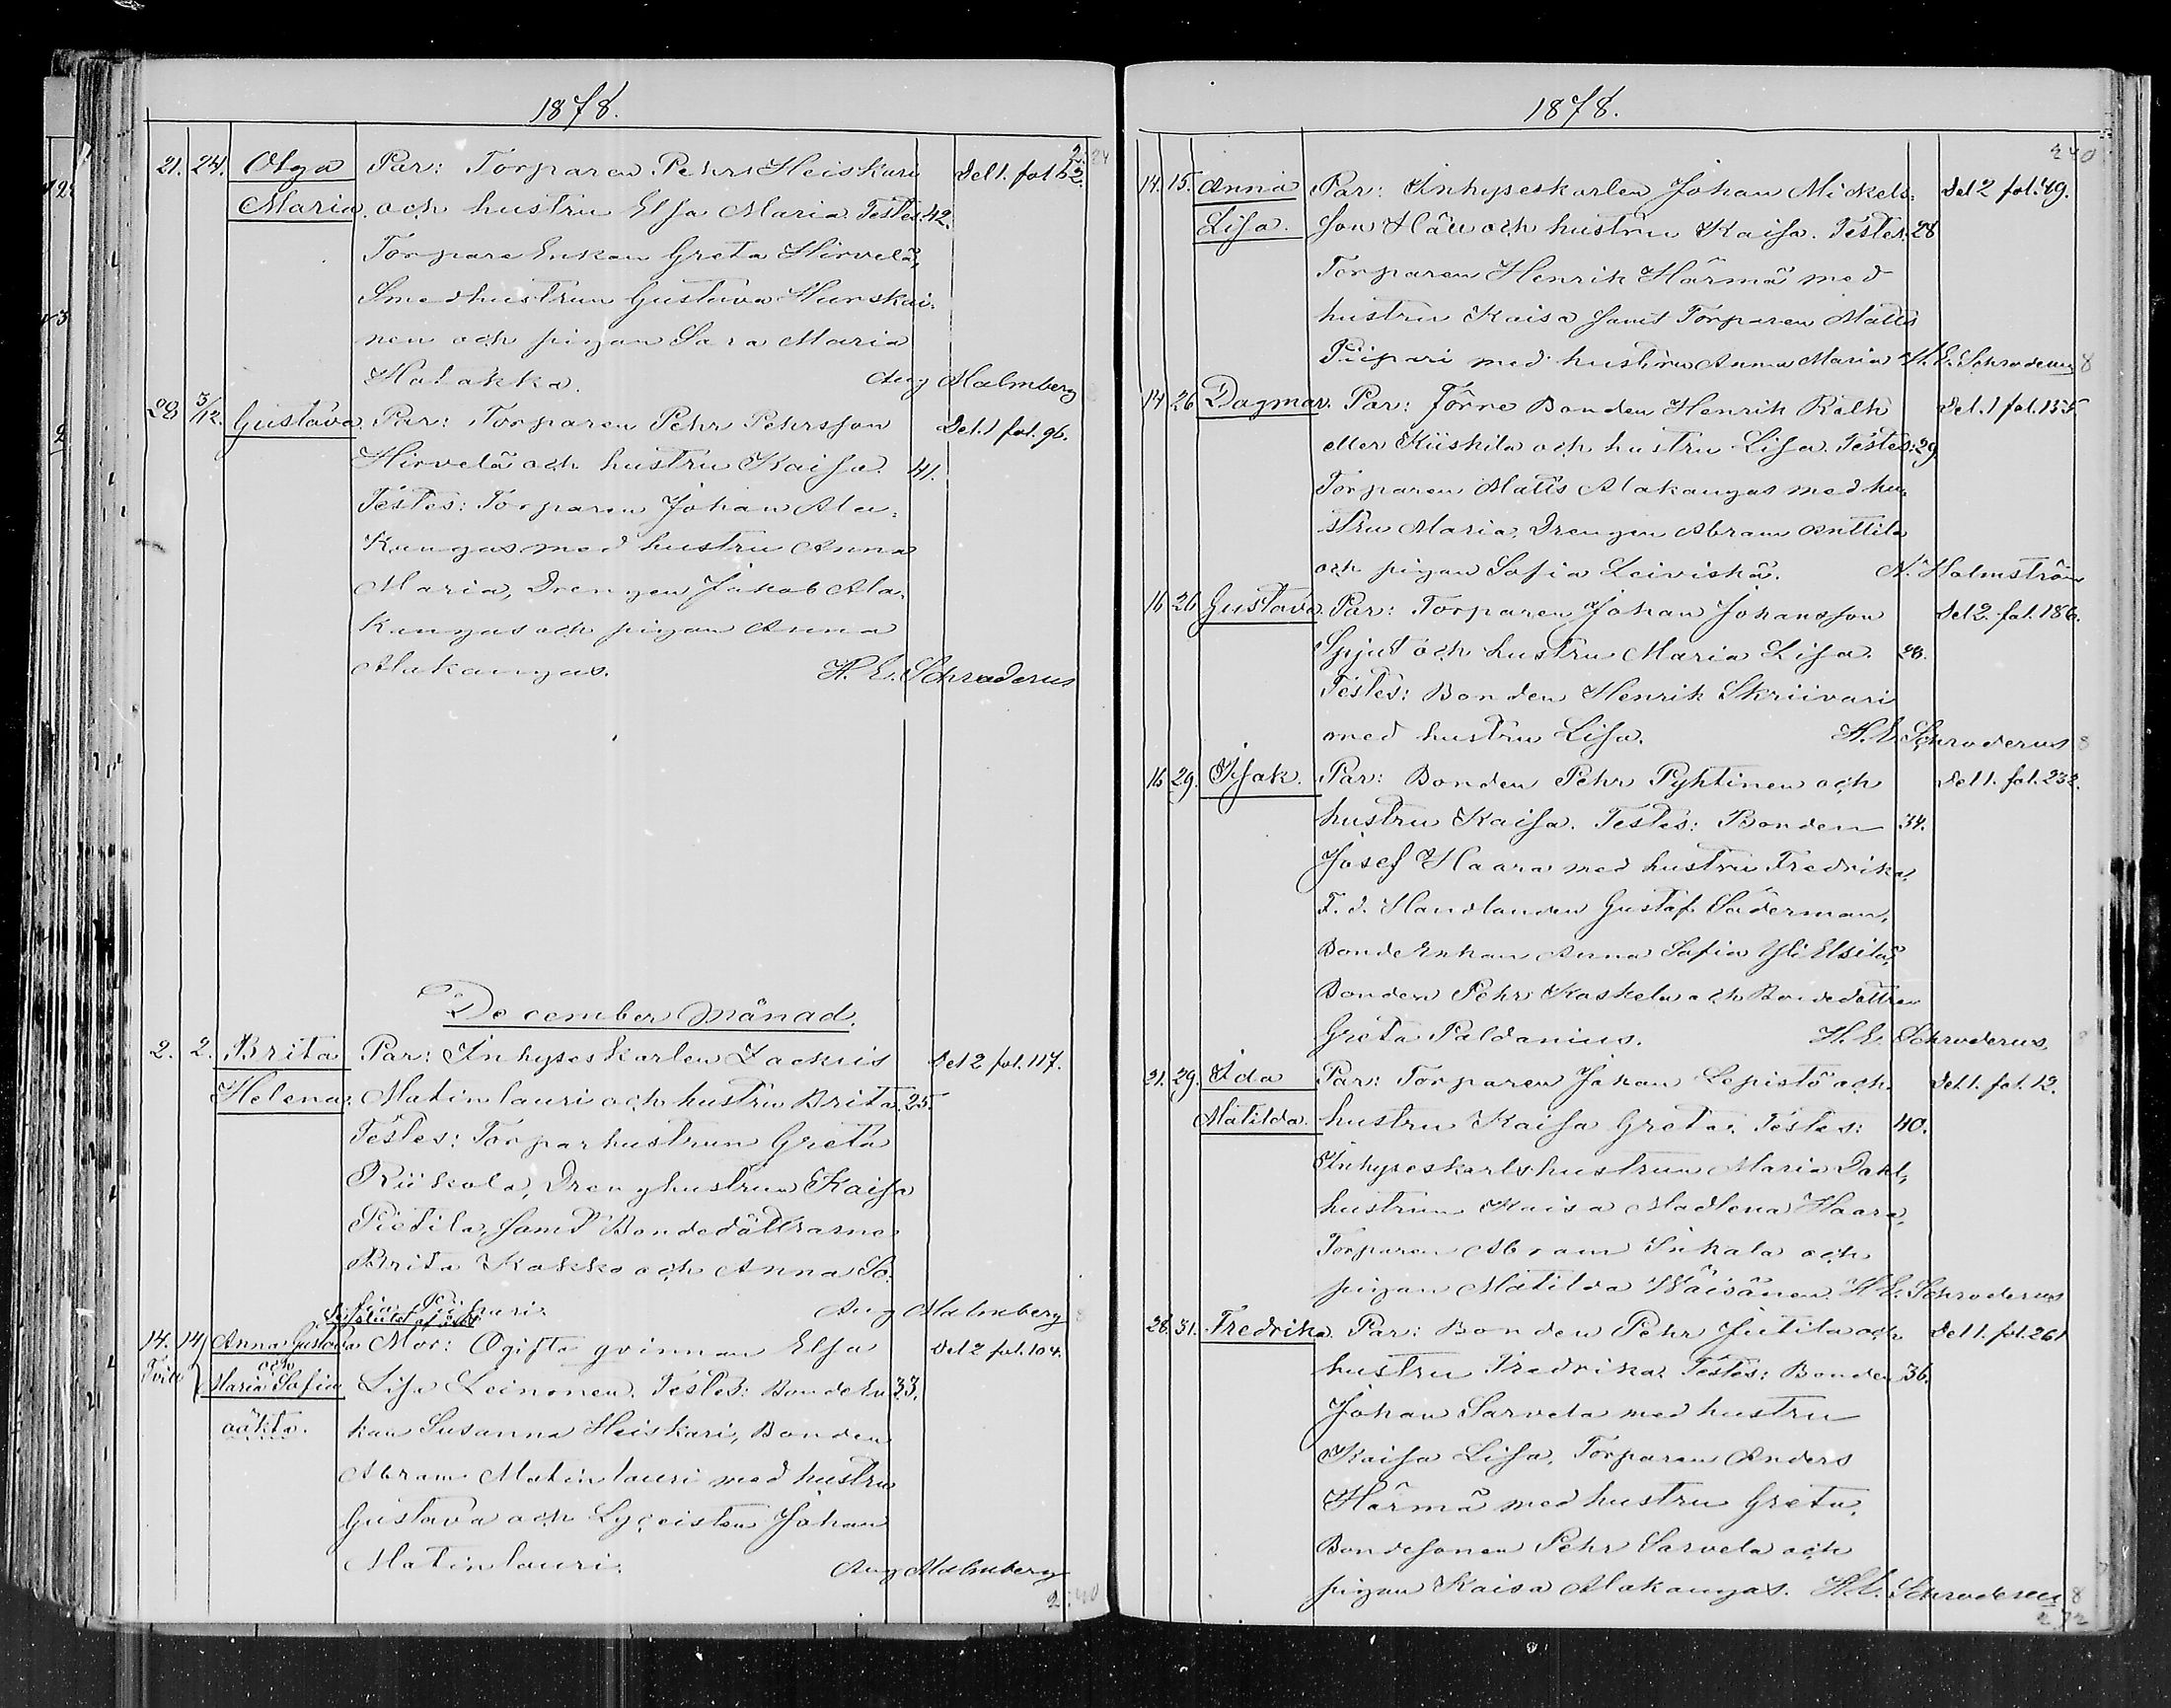 1878.
2:24
21. 24. Olga Par: Torparen Pehr Heiskari Del 1. fol. 52.
Maria. och hustru Elsa Maria. Testes: 42.
Torpare Enkan Greta Hirvelä,
Smedhustrun Gustava Hurskai-
nen och pigan Sara Maria
Halakka. Aug Malmberg
28 3/12. Gustava. Par: Torparen Pehr Pehrsson Del. 1 fol. 96.
Hirvelä och hustru Kaisa. 41.
Testes: Torparen Johan Ala-
Kangas med hustru Anna
Maria, Drengen Jakob Ala-
Kangas och pigan Anna
Alakangas. H. E. Schroderus
December Månad.
2. 2. Brita Par: Inhyseskarlen Zackris Del 2 fol. 117.
Helena. Matinlauri och hustru Brita. 25.
Testes: Torparhustrun Greta
Riikola, Drenghustrun Kaisa
Pietilä, samt Bondedöttrarna
Brita Kakko och Anna So-
fia Piipari. Aug Malmberg
14. 14 Anna Gustava Mor: Ogifta qvinnan Elsa Del 2 fol. 104.
och
Tvill Maria Sofia Lisa Leinonen. Testes: BondeEn- 33.
oäkta. kan Susanna Heiskari, Bonden
Abram Matinlauri med hustru
Gustava och Lyceisten Johan
Matinlauri. Aug Malmberg
2:40
1878.
240
14. 15. Anna Par: Inhyseskarlen Johan Mickels- Del 2 fol. 49.
Lisa. son Hau och hustru Kaisa. Testes: 28
Torparen Henrik Härmä med
hustru Kaisa samt Torparen Matts
Piipari med hustru Anna Maria H. E. Schroderus 8
14 26 Dagmar. Par: Förre Bonden Henrik Rälli Del. 1 fol. 155
eller Kiiskilä och hustru Lisa. Testes: 29
Torparen Matts Alakangas med hu-
stru Maria, Drengen Abram Anttila
och pigan Sofia Leiviskä. N. Holmström
16 26 Gustava. Par: Torparen Johan Johansson Del 2. fol. 186.
Spjut och hustru Maria Lisa. 28.
Testes: Bonden Henrik Skriivari
med hustru Lisa. H. E. Schroderus 8
16 29. Isak. Par: Bonden Pehr Pyhtinen och Del 1. fol. 232.
hustru Kaisa. Testes: Bonden 34.
Josef Haara med hustru Fredrika,
F. d. Handlanden Gustaf Söderman,
BondeEnkan Anna Sofia YliElsilä,
Bonden Pehr Kaskela och Bondedottren
Greta Paldanius. H. E. Schroderus. 8
21. 29. Ida Par: Torparen Johan Lepistö och Del 1. fol. 12.
Matilda. hustru Kaisa Greta. Testes: 40.
Inhyseskarlshustrun Maria Dahl,
hustrun Kaisa Madlena Haara,
Torparen Abram Inkala och
pigan Matilda Wäisänen. H. E. Schroderus
28. 31. Fredrika. Par: Bonden Pehr Jutila och Del 1. fol. 261
hustru Fredrika. Testes: Bonden 36.
Johan Sarvela med hustru
Kaisa Lisa, Torparen Anders
Härmä med hustru Greta,
Bondesonen Pehr Sarvela och
pigan Kaisa Alakangas. H. E. Schroderus 8
272